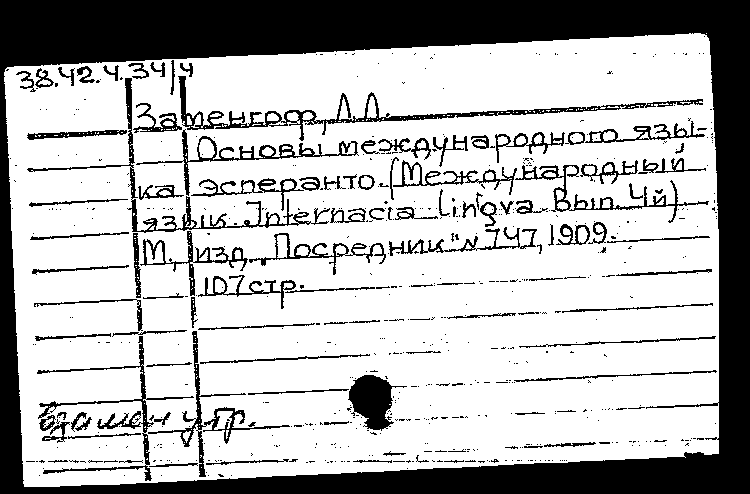 38.42.4.34/4
Заменгоф, Л.Л.
Основы международного язы-
ка эсперанто. (Международный
язык Internacia lingva Вып. 4й)
М., изд. „Посредник" № 747, 1909.
107 стр.
взамен утр.